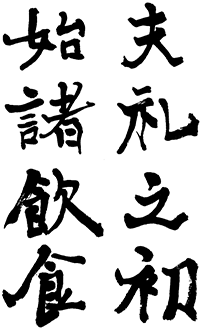 夫礼之初
始諸飲食